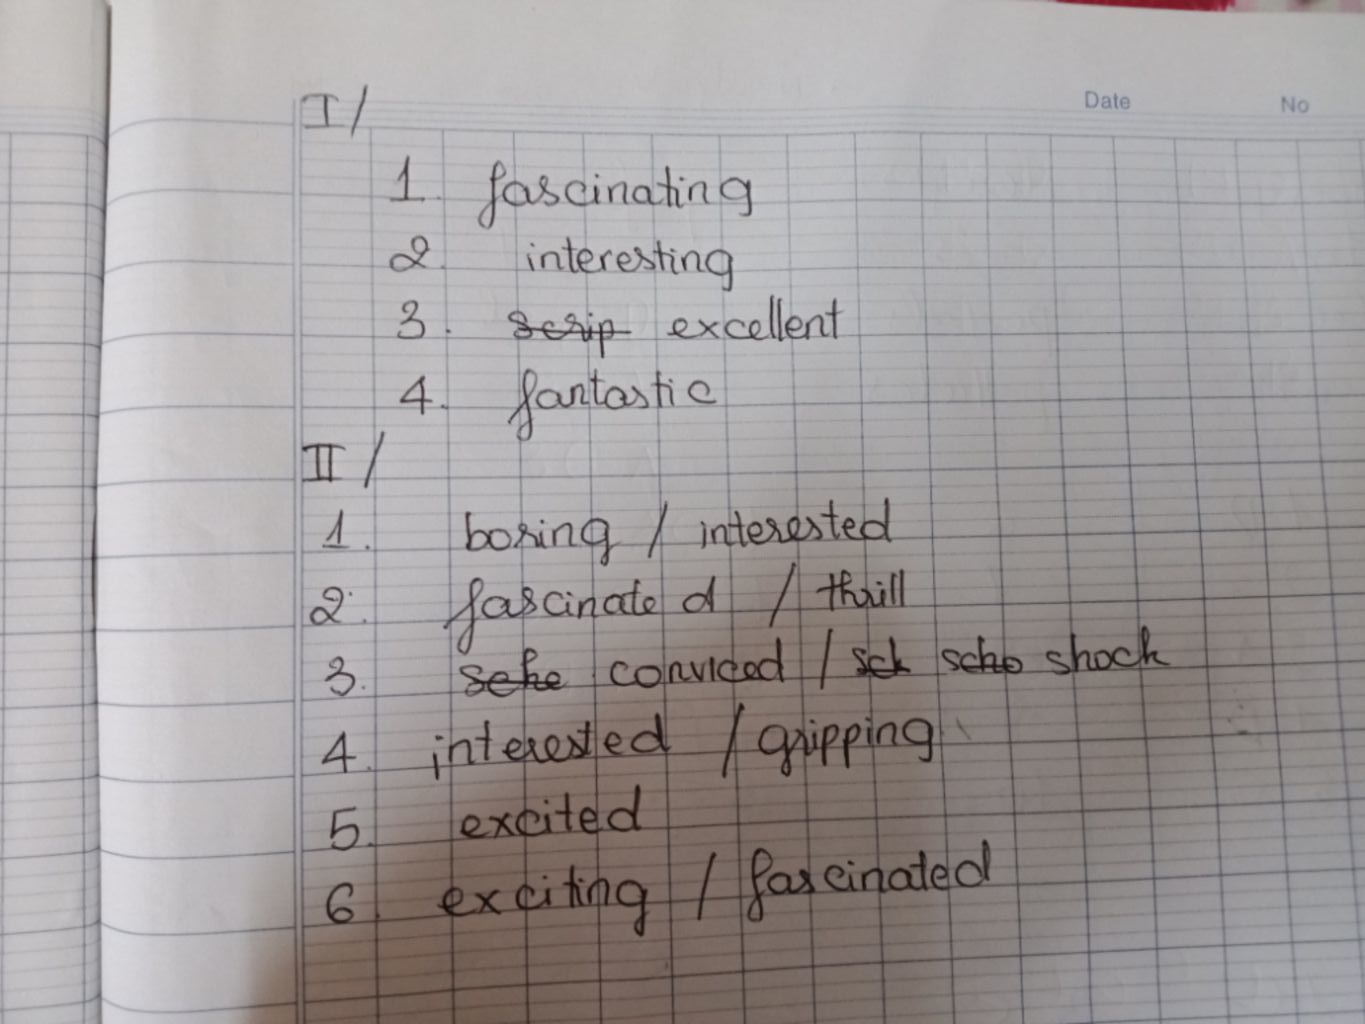 Date No
I/
1. fascinating
2. interesting
3. scrip excellent
4. fantastic
II/
1. boring / interested
2. fascinated / thrill
3. sche conviced / sck scho shock
4. interested / gripping
5. excited
6. exciting / fascinated